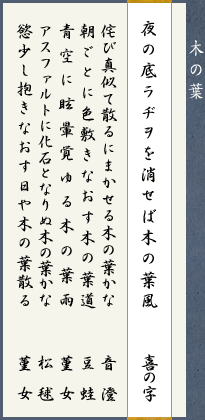 木の葉
夜の底ラヂヲを消せば木の葉風 喜の字
侘び真似て散るにまかせる木の葉かな 音澄
朝ごとに色敷きなおす木の葉道 豆蛙
青空に眩暈覚ゆる木の葉雨 菫女
アスファルトに化石となりぬ木の葉かな 松毬
慾少し抱きなおす日や木の葉散る 菫女